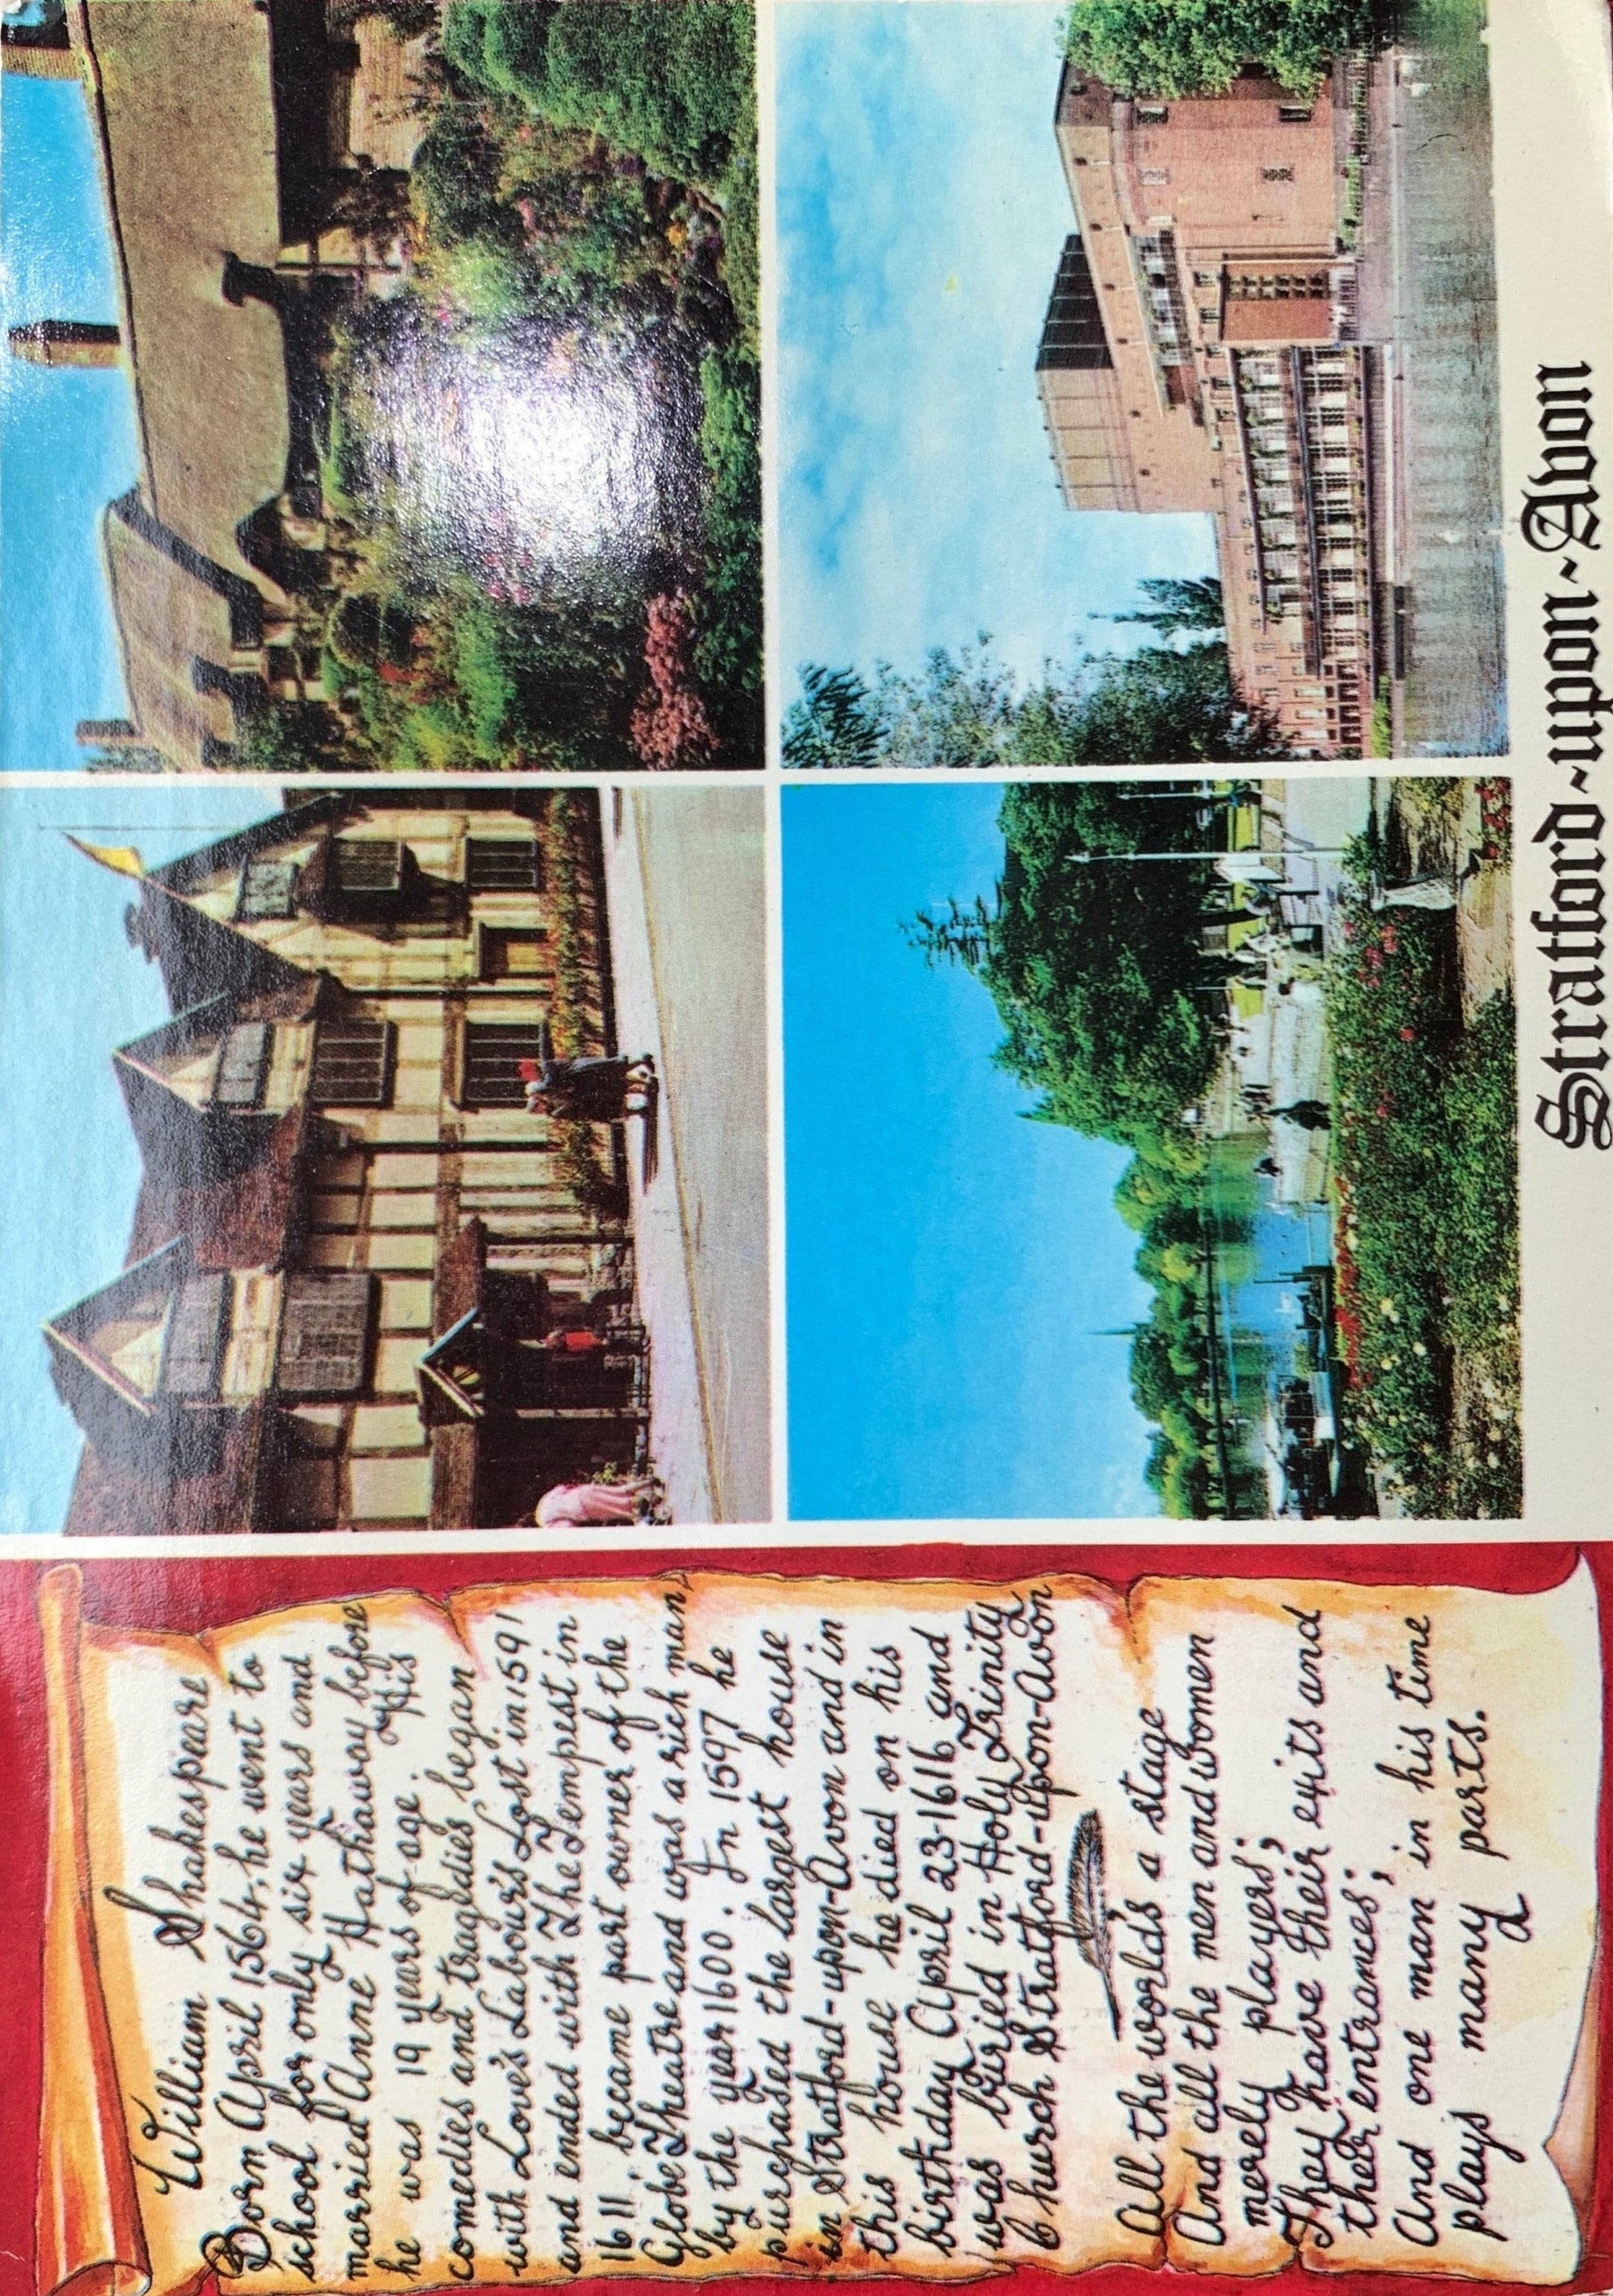 William Shakespeare
Born April 1564; he went to
school for only six years and
married Anne Hathaway before
he was 19 years of age. His
comedies and tragedies began
with Love's Labour's Lost in 1591
and ended with The Tempest in
1611; became part owner of the
Globe Theatre and was a rich man
by the year 1600. In 1597 he
purchased the largest house
in Stratford-upon-Avon and in
this house he died on his
birthday April 23-1616 and
was buried in Holy Trinity
Church Stratford-upon-Avon
All the world's a stage
And all the men and women
merely players;
They have their exits and
their entrances;
And one man in his time
plays many parts.
Stratford-upon-Avon